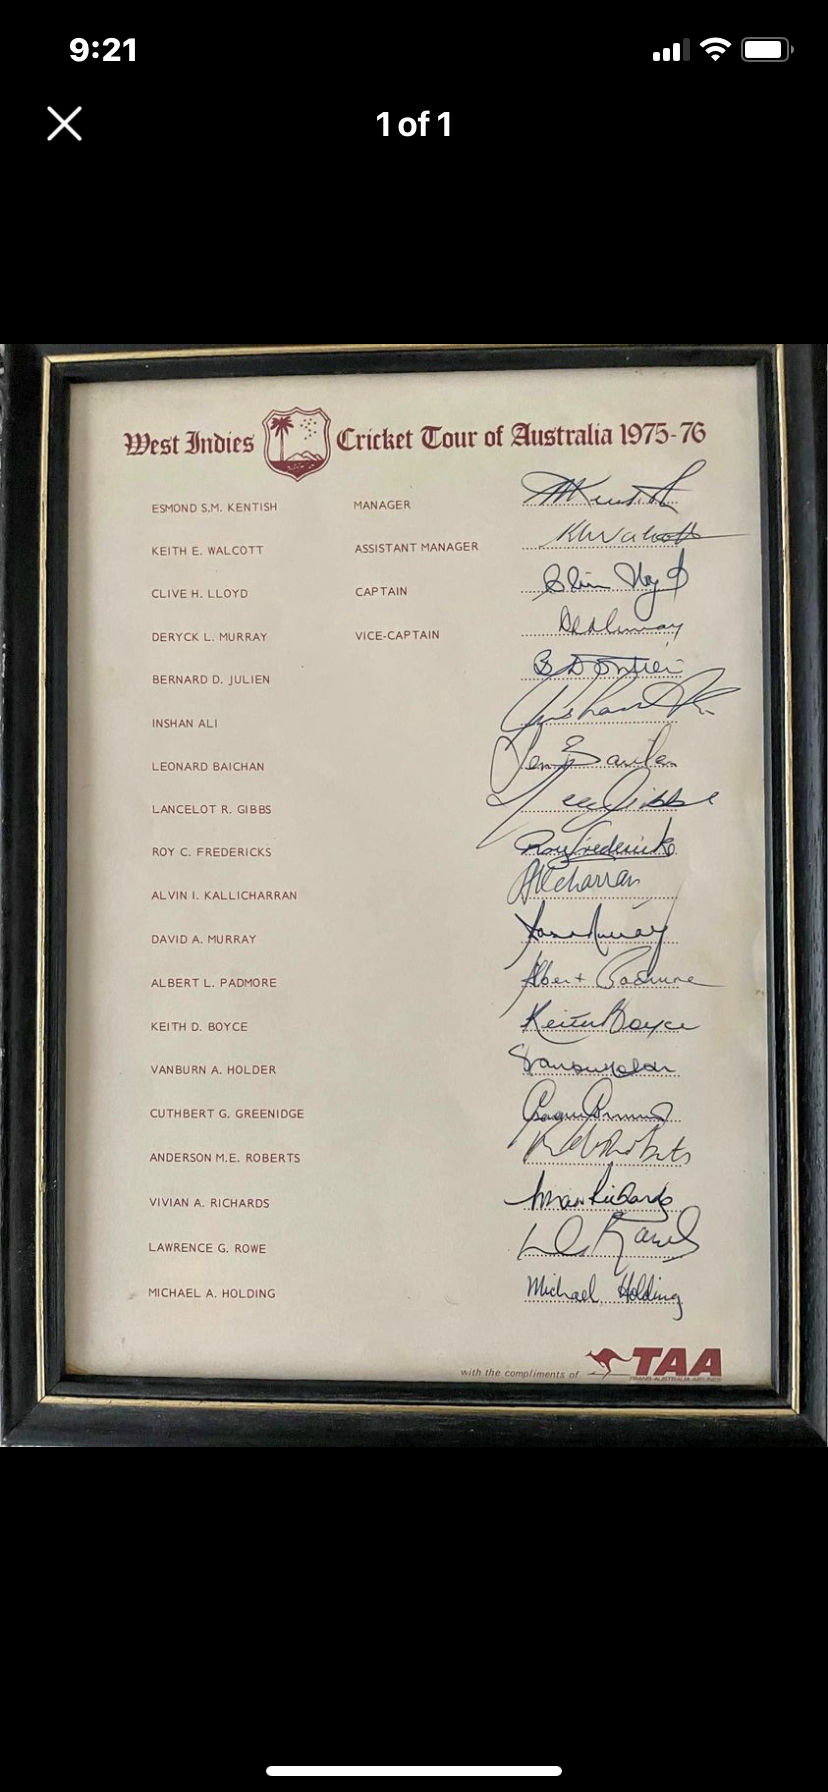 9:21
1 of 1
West Indies Cricket Tour of Australia 1975-76
ESMOND S.M. KENTISH MANAGER
KEITH E. WALCOTT ASSISTANT MANAGER KWalcott
CLIVE H. LLOYD CAPTAIN Clive Lloyd
DERYCK L. MURRAY VICE-CAPTAIN DLMurray
BERNARD D. JULIEN
INSHAN ALI Inshan Ali
LEONARD BAICHAN Len Baichan
LANCELOT R. GIBBS Lance Gibbs
ROY C. FREDERICKS Roy Fredericks
ALVIN I. KALLICHARRAN
DAVID A. MURRAY Murray
ALBERT L. PADMORE Albert Padmore
KEITH D. BOYCE Keith Boyce
VANBURN A. HOLDER Vanburn Holder
CUTHBERT G. GREENIDGE
ANDERSON M.E. ROBERTS Roberts
VIVIAN A. RICHARDS Vivian Richards
LAWRENCE G. ROWE
MICHAEL A. HOLDING Michael Holding
with the compliments of TAA
TRANS-AUSTRALIA AIRLINES